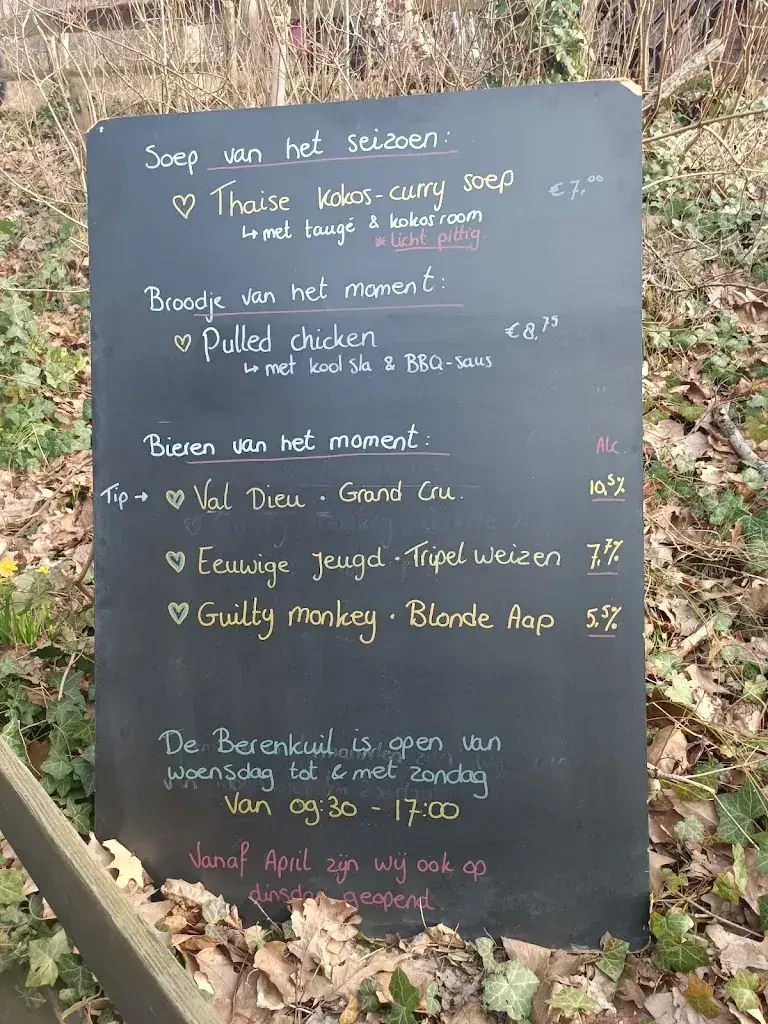 Soep van het seizoen:
♡ Thaise kokos-curry soep €7,00
↳ met taugé & kokosroom
* licht pittig
Broodje van het moment:
♡ Pulled chicken €8,75
↳ met koolsla & BBQ-saus
Bieren van het moment: Alc.
Tip → ♡ Val Dieu · Grand Cru. 10,5%
♡ Eeuwige Jeugd · Tripel weizen 7,7%
♡ Guilty monkey · Blonde Aap 5,5%
De Berenkuil is open van
woensdag tot & met zondag
Van 09:30 - 17:00
Vanaf April zijn wij ook op
dinsdag geopend